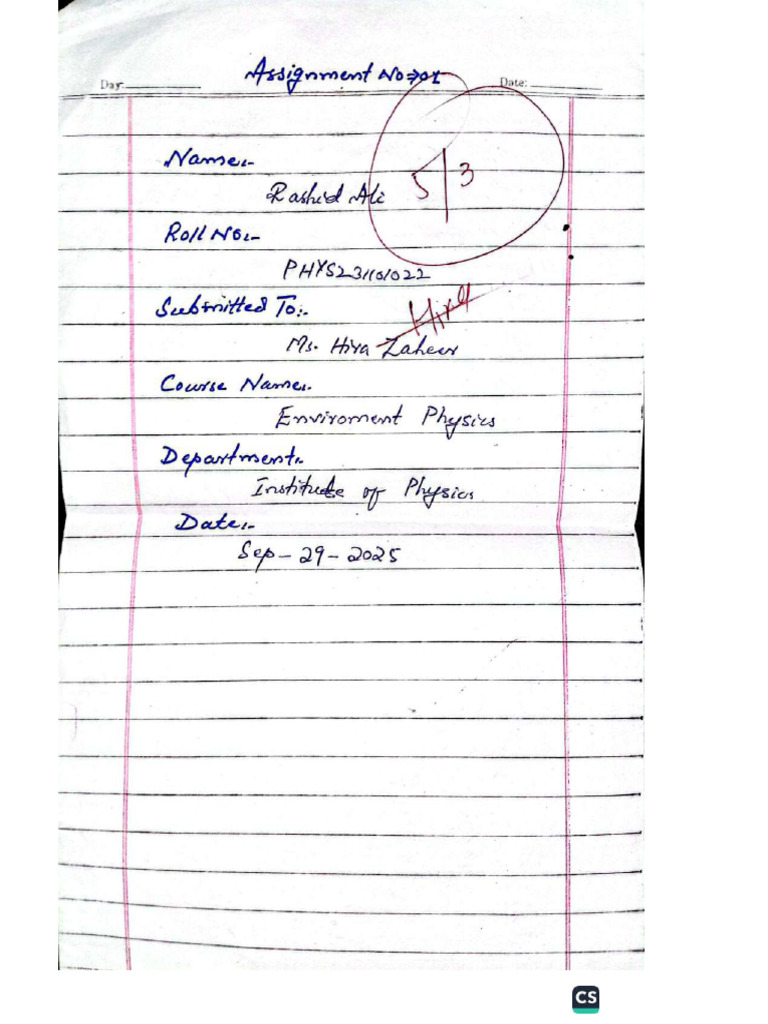 Assignment No⇒01
Day: Date:
Name:-
Rashid Ali
5/3
Roll No:-
PHYS231101022
Submitted To:-
Hira
Ms. Hira Zaheer
Course Name:-
Enviroment Physics
Department:-
Institute of Physics
Date:-
Sep-29-2025
CS